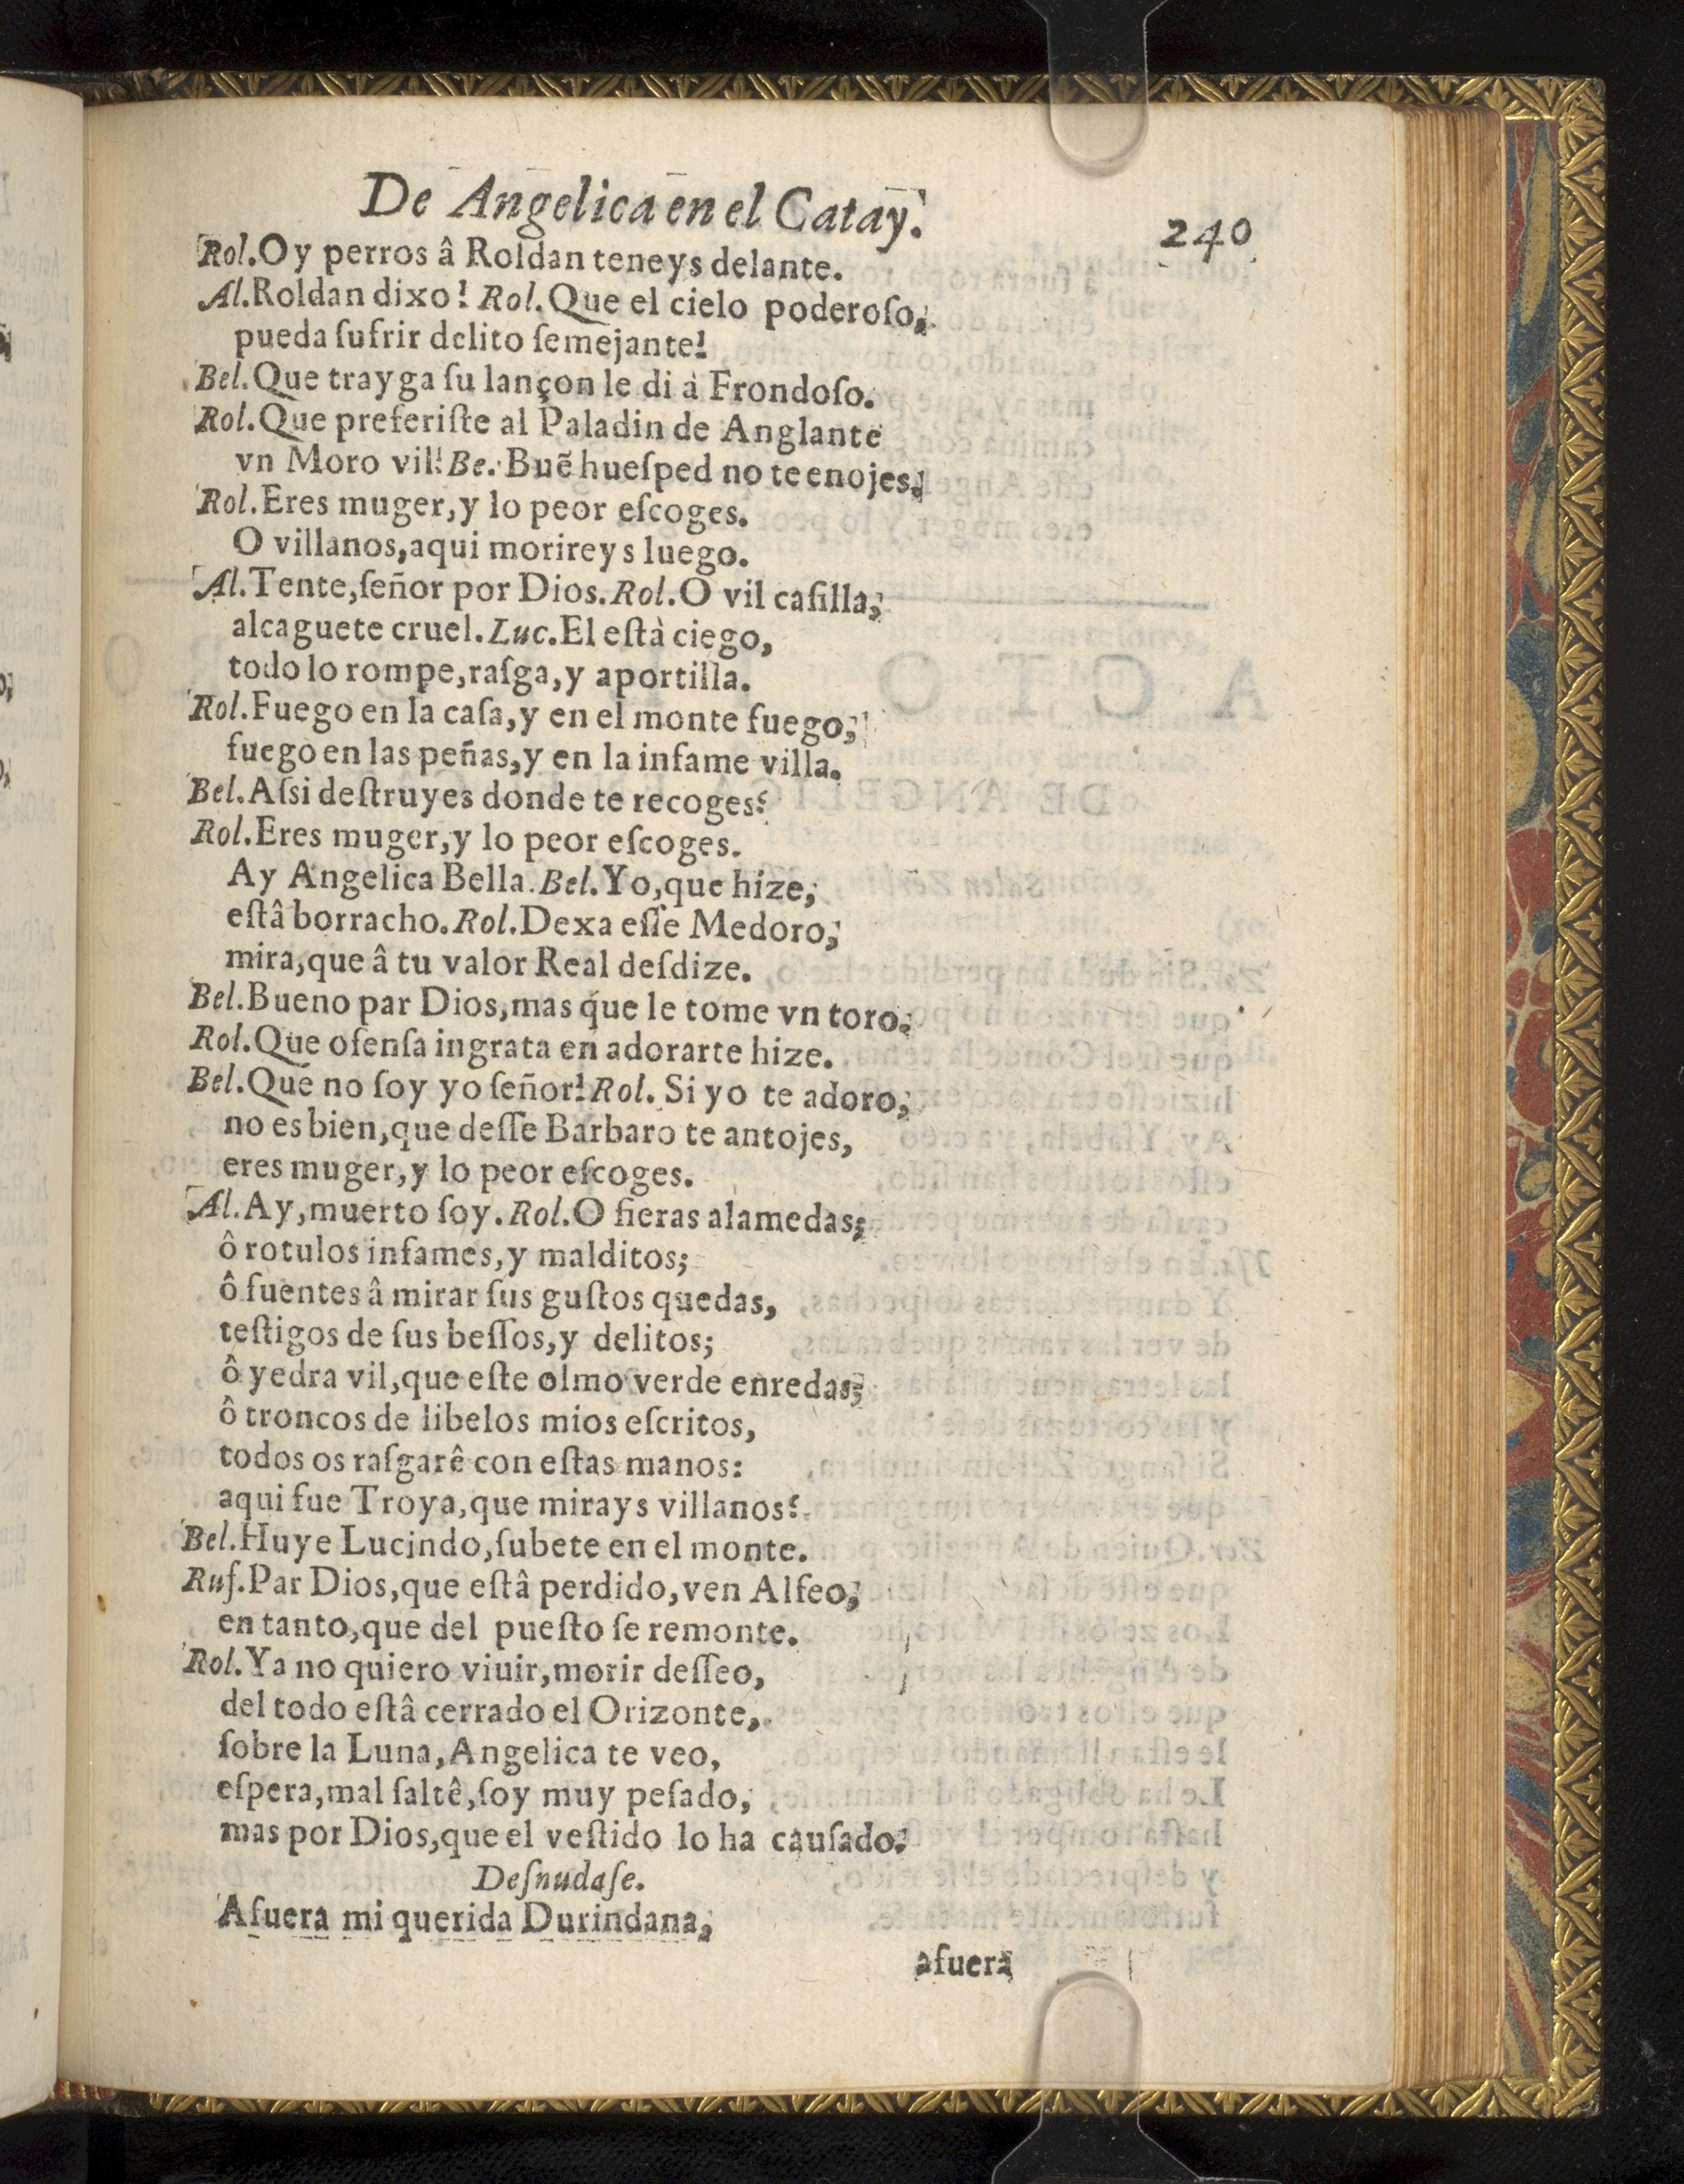 De Angelica en el Catay.
240
Rol.Oy perros â Roldan teneys delante.
Al.Roldan dixo! Rol.Que el cielo poderoſo,
pueda ſufrir delito ſemejante!
Bel.Que trayga ſu lançon le di à Frondoſo.
Rol.Que preferiſte al Paladin de Anglante
vn Moro vil! Be. Buẽ hueſped no te enojes.
Rol.Eres muger,y lo peor eſcoges.
O villanos,aqui morireys luego.
Al.Tente,ſeñor por Dios.Rol.O vil caſilla,
alcaguete cruel.Luc.El eſtà ciego,
todo lo rompe,raſga,y aportilla.
Rol.Fuego en la caſa,y en el monte fuego,
fuego en las peñas,y en la infame villa.
Bel.Aſsi deſtruyes donde te recoges?
Rol.Eres muger,y lo peor eſcoges.
Ay Angelica Bella.Bel.Yo,que hize,
eſtâ borracho.Rol.Dexa eſſe Medoro,
mira,que â tu valor Real deſdize.
Bel.Bueno par Dios,mas que le tome vn toro.
Rol.Que ofenſa ingrata en adorarte hize.
Bel.Que no ſoy yo ſeñor!Rol. Si yo te adoro,
no es bien,que deſſe Barbaro te antojes,
eres muger,y lo peor eſcoges.
Al.Ay,muerto ſoy.Rol.O fieras alamedas;
ô rotulos infames,y malditos;
ô fuentes â mirar ſus guſtos quedas,
teſtigos de ſus beſſos,y delitos;
ô yedra vil,que eſte olmo verde enredas;
ô troncos de libelos mios eſcritos,
todos os raſgarê con eſtas manos:
aqui fue Troya,que mirays villanos?
Bel.Huye Lucindo,ſubete en el monte.
Ruf.Par Dios,que eſtâ perdido,ven Alfeo,
en tanto,que del pueſto ſe remonte.
Rol.Ya no quiero viuir,morir deſſeo,
del todo eſtâ cerrado el Orizonte,
ſobre la Luna,Angelica te veo,
eſpera,mal ſaltê,ſoy muy peſado,
mas por Dios,que el veſtido lo ha cauſado.
Deſnudaſe.
Afuera mi querida Durindana,
afuera